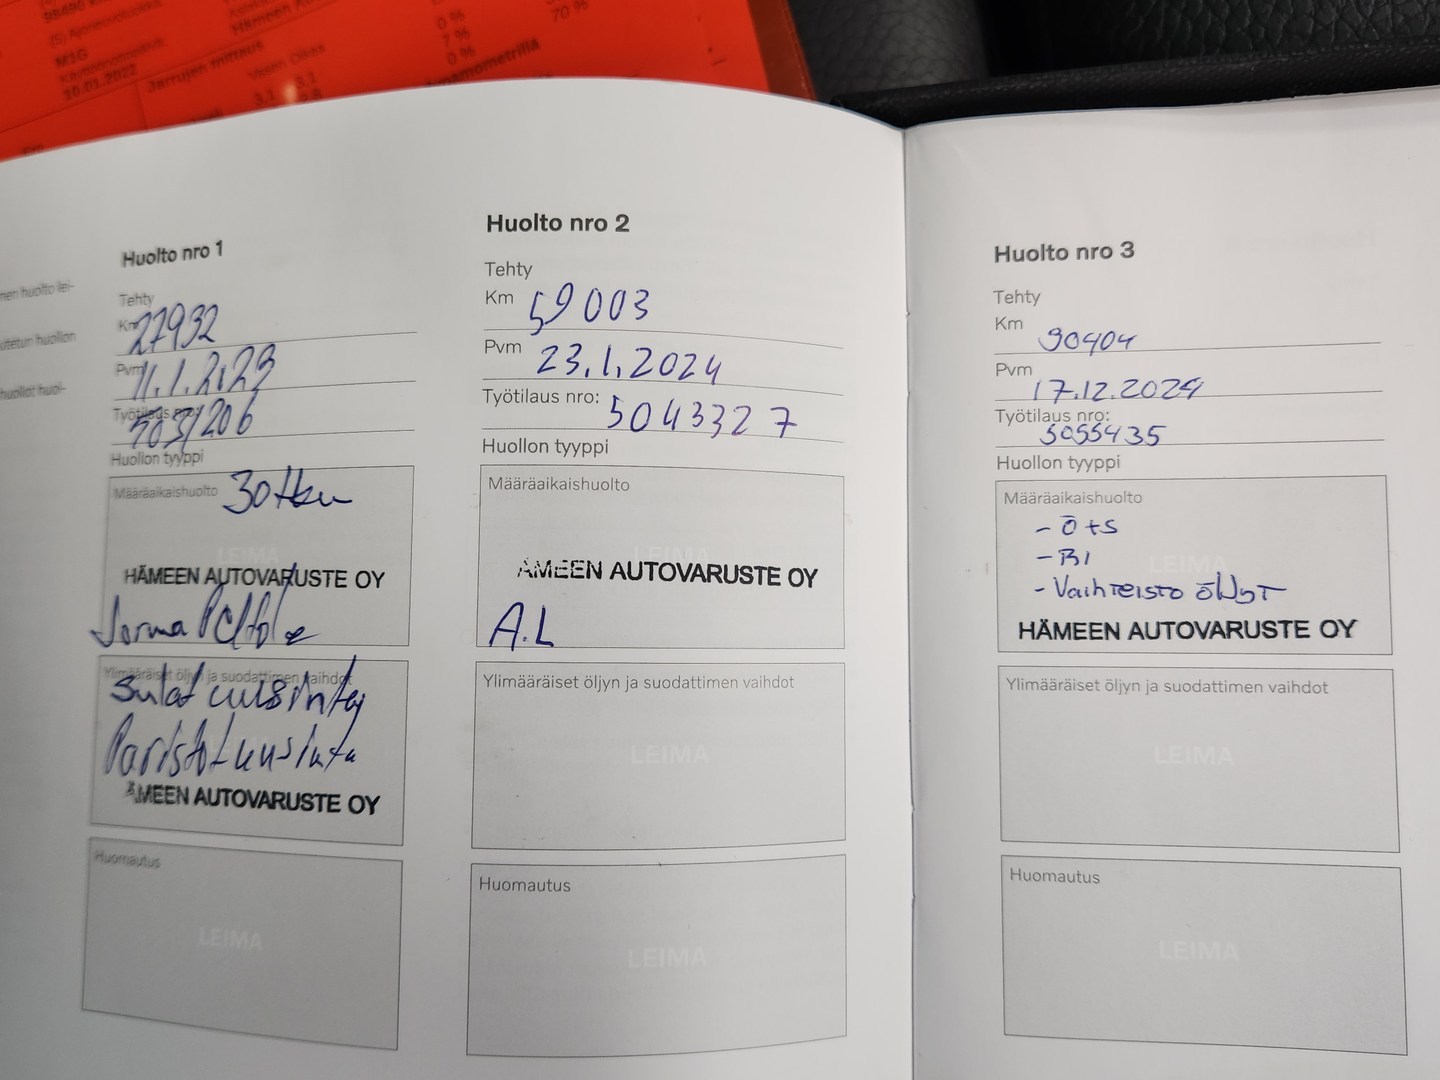 (S) Ajoneuvoluokka:
M1G
Käyttöönottopäivä:
10.01.2022
Jarrujen mittaus
Vasen Oikea
3,1 3,1
0 %
7 %
0 %
70 %
Huolto nro 1
Tehty
Km 27932
Pvm 11.1.2023
Työtilaus nro:
Huollon tyyppi
Määräaikaishuolto 30tkm
LEIMA
HÄMEEN AUTOVARUSTE OY
Jorma
Ylimääräiset öljyn ja suodattimen vaihdot
Sulat uusinta
Paristot uusinta
ÄMEEN AUTOVARUSTE OY
Huomautus
LEIMA
Huolto nro 2
Tehty
Km 59003
Pvm 23.1.2024
Työtilaus nro: 5043327
Huollon tyyppi
Määräaikaishuolto
LEIMA
ÄMEEN AUTOVARUSTE OY
A.L
Ylimääräiset öljyn ja suodattimen vaihdot
LEIMA
Huomautus
LEIMA
Huolto nro 3
Tehty
Km 90404
Pvm 17.12.2024
Työtilaus nro:
5055435
Huollon tyyppi
Määräaikaishuolto
- Ö+S
- B1
LEIMA
- Vaihteisto öljyt
HÄMEEN AUTOVARUSTE OY
Ylimääräiset öljyn ja suodattimen vaihdot
LEIMA
Huomautus
LEIMA